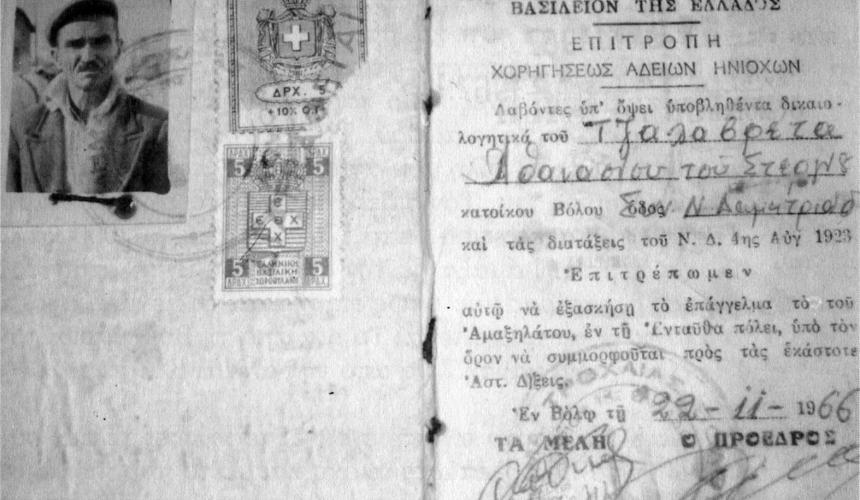 ΔΡΧ. 5
+10% Ο.Γ.
5 5
5 5
ΔΡΑΧ ΕΛΛΗΝΙΚΗ ΔΡΑΧ
ΒΑΣΙΛΙΚΗ
ΧΩΡΟΦΥΛΑΚΗ
ΒΑΣΙΛΕΙΟΝ ΤΗΣ ΕΛΛΑΔΟΣ
ΕΠΙΤΡΟΠΗ
ΧΟΡΗΓΗΣΕΩΣ ΑΔΕΙΩΝ ΗΝΙΟΧΩΝ
Λαβόντες ὑπ' ὄψει ὑποβληθέντα δικαιο-
λογητικά τοῦ Τζαλαβρέτα
Ἀθανασίου τοῦ Στεργ
κατοίκου Βόλου ὁδος Ν Δημητριάδ
καὶ τὰς διατάξεις τοῦ Ν. Δ. 4ης Αὐγ 1923
Ἐπιτρέπωμεν
αὐτῷ νὰ ἐξασκήσῃ τὸ ἐπάγγελμα τὸ τοῦ
Ἁμαξηλάτου, ἐν τῇ Ἐνταῦθα πόλει, ὑπὸ τὸν
ὅρον νὰ συμμορφοῦται πρὸς τὰς ἑκάστοτε
Ἀστ. Δ)ξεις.
ΤΡΟΧΑΙΑΣ
Ἐν Βόλῳ τῇ 22-11-1966
ΤΑ ΜΕΛΗ Ο ΠΡΟΕΔΡΟΣ